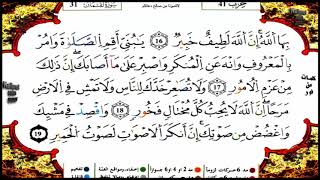 سورة لقمان 31
بِهَا اللَّهُ إِنَّ اللَّهَ لَطِيفٌ خَبِيرٌ ١٦ يَـٰبُنَىَّ أَقِمِ الصَّلَوٰةَ وَأْمُرْ
بِالْمَعْرُوفِ وَانْهَ عَنِ الْمُنكَرِ وَاصْبِرْ عَلَىٰ مَا أَصَابَكَ إِنَّ ذَٰلِكَ
مِنْ عَزْمِ الْأُمُورِ ١٧ وَلَا تُصَعِّرْ خَدَّكَ لِلنَّاسِ وَلَا تَمْشِ فِى الْأَرْضِ
مَرَحًا إِنَّ اللَّهَ لَا يُحِبُّ كُلَّ مُخْتَالٍ فَخُورٍ ١٨ وَاقْصِدْ فِى مَشْيِكَ
وَاغْضُضْ مِن صَوْتِكَ إِنَّ أَنكَرَ الْأَصْوَٰتِ لَصَوْتُ الْحَمِيرِ ١٩